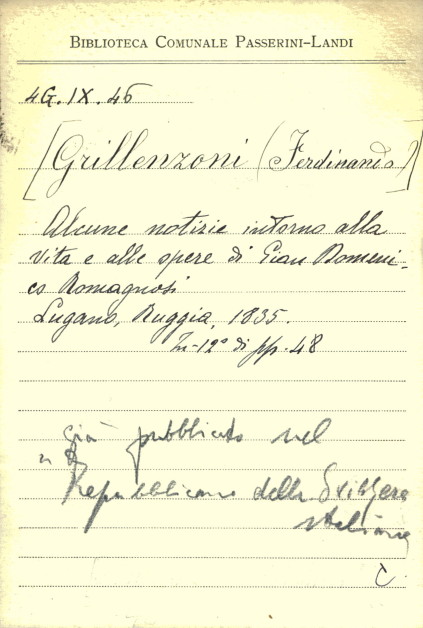 BIBLIOTECA COMUNALE PASSERINI-LANDI
4G.IX.45
[Grillenzoni (Ferdinando)]
Alcune notizie intorno alla
vita e alle opere di Gian Domeni-
co Romagnosi
Lugano, Ruggia, 1835.
In-12° di pp. 48
già pubblicato nel
Repubblicano della Svizzera
italiana
C